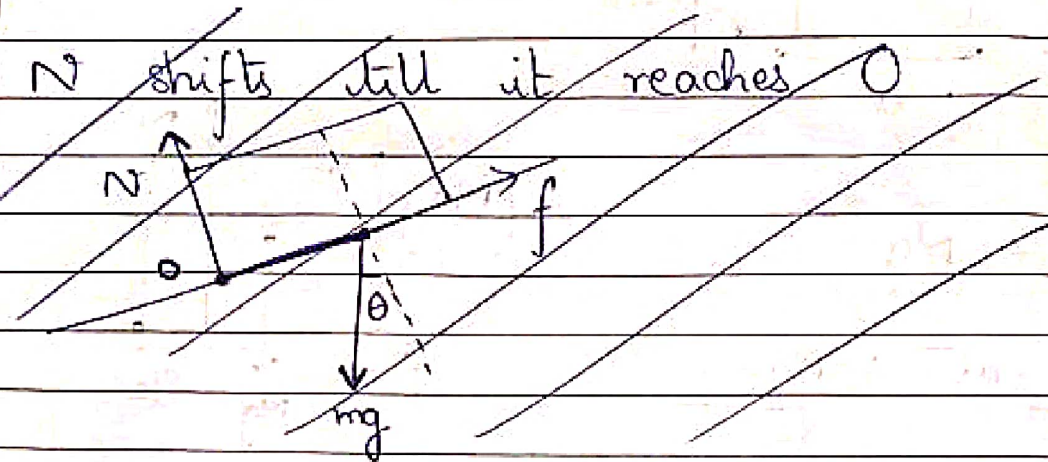 N shifts till it reaches O
N
f
O
θ
mg